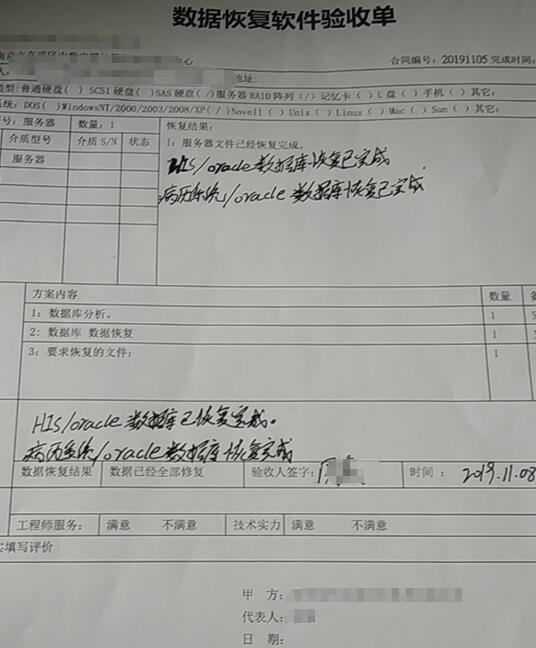 数据恢复软件验收单
心 合同编号：20191105 完成时间：
人： 地址：
类型：普通硬盘( ) SCSI 硬盘( )SAS 硬盘(/)服务器 RAID 阵列(/) 记忆卡( ) U 盘( ) 手机( ) 其它：
系统：DOS( )WindowsNT/2000/2003/2008/XP(/)Novell( ) Unix( ) Linux( ) Mac( ) Sun( ) 其它：
号：服务器 数量：1 恢复结果：
介质型号 介质 S/N 状态 1：服务器文件已经恢复完成。
服务器 HIS/oracle 数据库恢复已完成
病历系统/oracle 数据库恢复已完成
方案内容 数量
1：数据库分析。 1
2：数据库 数据恢复 1
3：要求恢复的文件： 1
HIS/oracle 数据库已恢复完成。
病历系统/oracle 数据库恢复完成
数据恢复结果 数据已经全部修复 验收人签字： 时间： 2019.11.08
工程师服务： 满意 不满意 技术实力 满意 不满意
填写评价
甲 方：
代表人：
日 期：